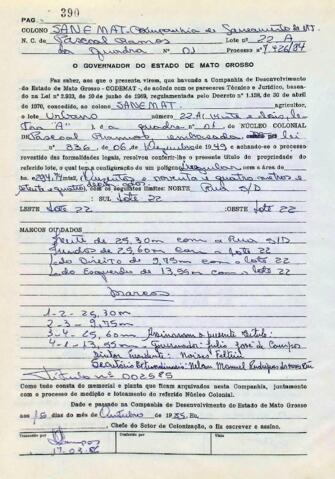 PAG. 390
COLONO SANEMAT - Companhia de Saneamento do MT
N. C. de Pascoal Ramos Lote nº 22-A
da Quadra nº 01 Processo nº 7.926/84
O GOVERNADOR DO ESTADO DE MATO GROSSO
Faz saber, aos que a presente virem, que havendo a Companhia de Desenvolvimento
do Estado de Mato Grosso - CODEMAT -, de acordo com os pareceres Técnico e Jurídico, basea-
do na Lei nº 2.923, de 1969, regulamentada pelo Decreto nº 1.138, de 30 de abril
de 1970, concedido, ao colono SANEMAT agricultor,
o lote Urbano número 22-A (vinte e dois le-
tra "A") da quadra nº 01 do NÚCLEO COLONIAL
de Pascoal Ramos, embasado na lei
nº 836, de 06 de Dezembro 1949 e achando-se o processo
revestido das formalidades legais, resolveu conferir-lhe o presente título de propriedade do
referido lote, o qual tem a configuração de um polígono irregular com a área de
294,74 mts² (duzentos e noventa e quatro metros e
setenta e quatro com os seguintes limites: NORTE Rua S/D
: SUL Lote 22
LESTE Lote 22 :OESTE Lote 22
MARCOS OU LADOS
Frente de 25,30m com a Rua S/D
Fundos de 25,60m com o lote 22
Lado Direito de 9,75m com o lote 22
Lado Esquerdo de 13,55m com o lote 22
Marcos
1-2 - 25,30m
2-3 - 9,75m
3-4 - 25,60m Assinaram o presente título:
4-1 - 13,55m - Governador: Julio José de Campos
Diretor Presidente: Moises Feltrin
Secretário Extraordinário: Nelson Manuel
Título nº 002585
Como tudo consta do memorial e planta que ficam arquivados nesta Companhia, juntamente
com o processo de medição e loteamento do referido Núcleo Colonial.
Dado e passado na Companhia de Desenvolvimento do Estado de Mato Grosso
aos 15 dias do mês de Outubro de 1985. Eu,
, Chefe do Setor de Colonização, o fiz escrever e assino.
Transcrito por
Conferido
Visto
17.03.86